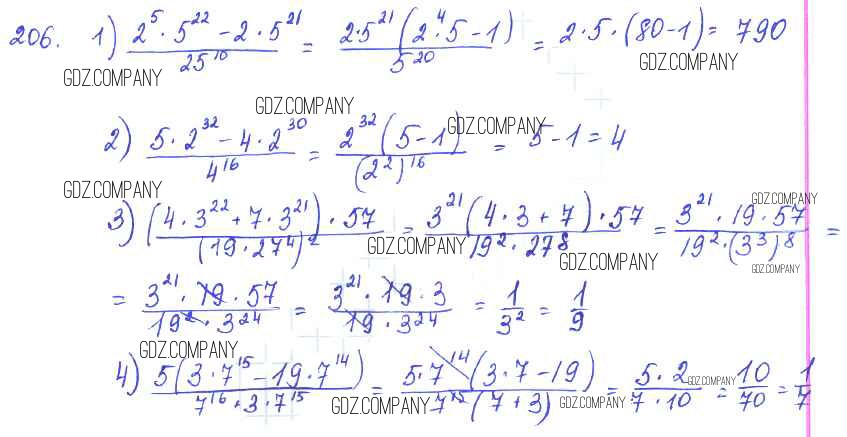 206. 1) (2^5 · 5^22 − 2 · 5^21) / 25^10 = 2·5^21 (2^4 · 5 − 1) / 5^20 = 2·5·(80−1) = 790
GDZ.COMPANY GDZ.COMPANY
GDZ.COMPANY GDZ.COMPANY
2) (5 · 2^32 − 4 · 2^30) / 4^16 = 2^32 (5−1) / (2^2)^16 = 5−1 = 4
GDZ.COMPANY GDZ.COMPANY
3) (4·3^22 + 7·3^21) · 57 / (19·27^4)^2 = 3^21 (4·3+7) · 57 / 19^2 · 27^8 = 3^21 · 19 · 57 / 19^2 · (3^3)^8 =
GDZ.COMPANY GDZ.COMPANY GDZ.COMPANY
= 3^21 · 19 · 57 / 19^2 · 3^24 = 3^21 · 19 · 3 / 19 · 3^24 = 1 / 3^2 = 1 / 9
GDZ.COMPANY
4) 5(3·7^15 − 19·7^14) / 7^16 + 3·7^15 = 5·7^14 (3·7−19) / 7^15 (7+3) = 5·2 / 7·10 = 10 / 70 = 1 / 7
GDZ.COMPANY GDZ.COMPANY GDZ.COMPANY